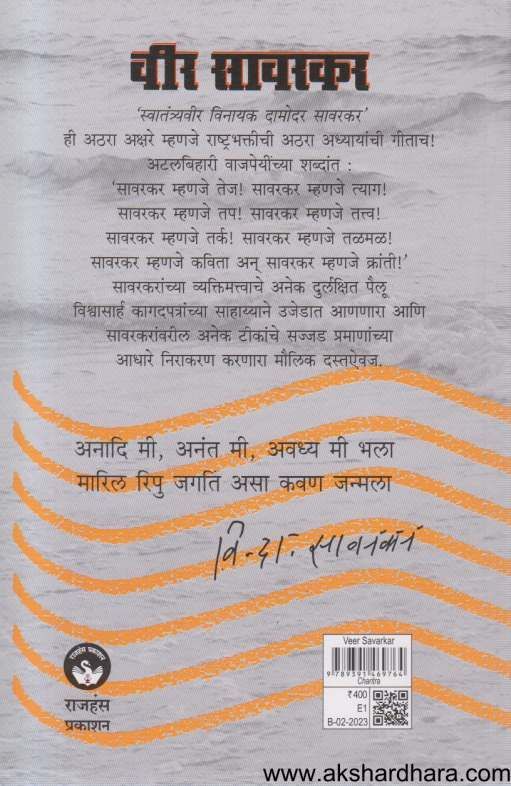 वीर सावरकर
‘स्वातंत्र्यवीर विनायक दामोदर सावरकर’
ही अठरा अक्षरे म्हणजे राष्ट्रभक्तीची अठरा अध्यायांची गीताच!
अटलबिहारी वाजपेयींच्या शब्दांत :
‘सावरकर म्हणजे तेज! सावरकर म्हणजे त्याग!
सावरकर म्हणजे तप! सावरकर म्हणजे तत्त्व!
सावरकर म्हणजे तर्क! सावरकर म्हणजे तळमळ!
सावरकर म्हणजे कविता अन् सावरकर म्हणजे क्रांती!’
सावरकरांच्या व्यक्तिमत्त्वाचे अनेक दुर्लक्षित पैलू
विश्वासार्ह कागदपत्रांच्या साहाय्याने उजेडात आणणारा आणि
सावरकरांवरील अनेक टीकांचे सज्जड प्रमाणांच्या
आधारे निराकरण करणारा मौलिक दस्तऐवज.
अनादि मी, अनंत मी, अवध्य मी भला
मारिल रिपु जगतिं असा कवण जन्मला
वि. दा. सावरकर
राजहंस प्रकाशन
राजहंस
प्रकाशन
Veer Savarkar
9789391469764
Charitra
₹400
E1
B-02-2023
www.akshardhara.com